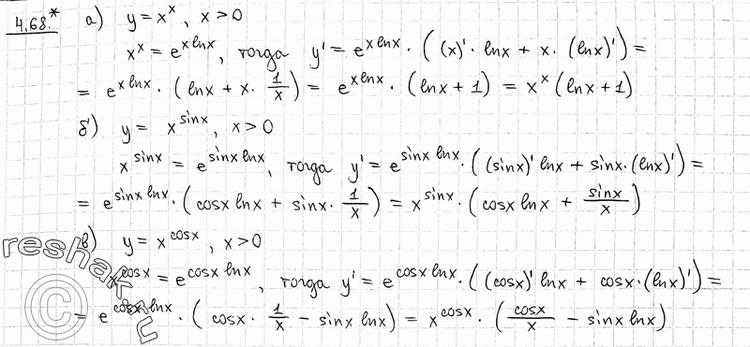 4.68.* а) y = x^x, x > 0
x^x = e^{x lnx}, тогда y' = e^{x lnx} · ((x)' · lnx + x · (lnx)') =
= e^{x lnx} · (lnx + x · 1/x) = e^{x lnx} · (lnx + 1) = x^x (lnx + 1)
б) y = x^{sinx}, x > 0
x^{sinx} = e^{sinx lnx}, тогда y' = e^{sinx lnx} · ((sinx)' lnx + sinx · (lnx)') =
= e^{sinx lnx} · (cosx lnx + sinx · 1/x) = x^{sinx} · (cosx lnx + sinx/x)
в) y = x^{cosx}, x > 0
x^{cosx} = e^{cosx lnx}, тогда y' = e^{cosx lnx} · ((cosx)' lnx + cosx · (lnx)') =
= e^{cosx lnx} · (cosx · 1/x − sinx lnx) = x^{cosx} · (cosx/x − sinx lnx)
reshak.ru
©